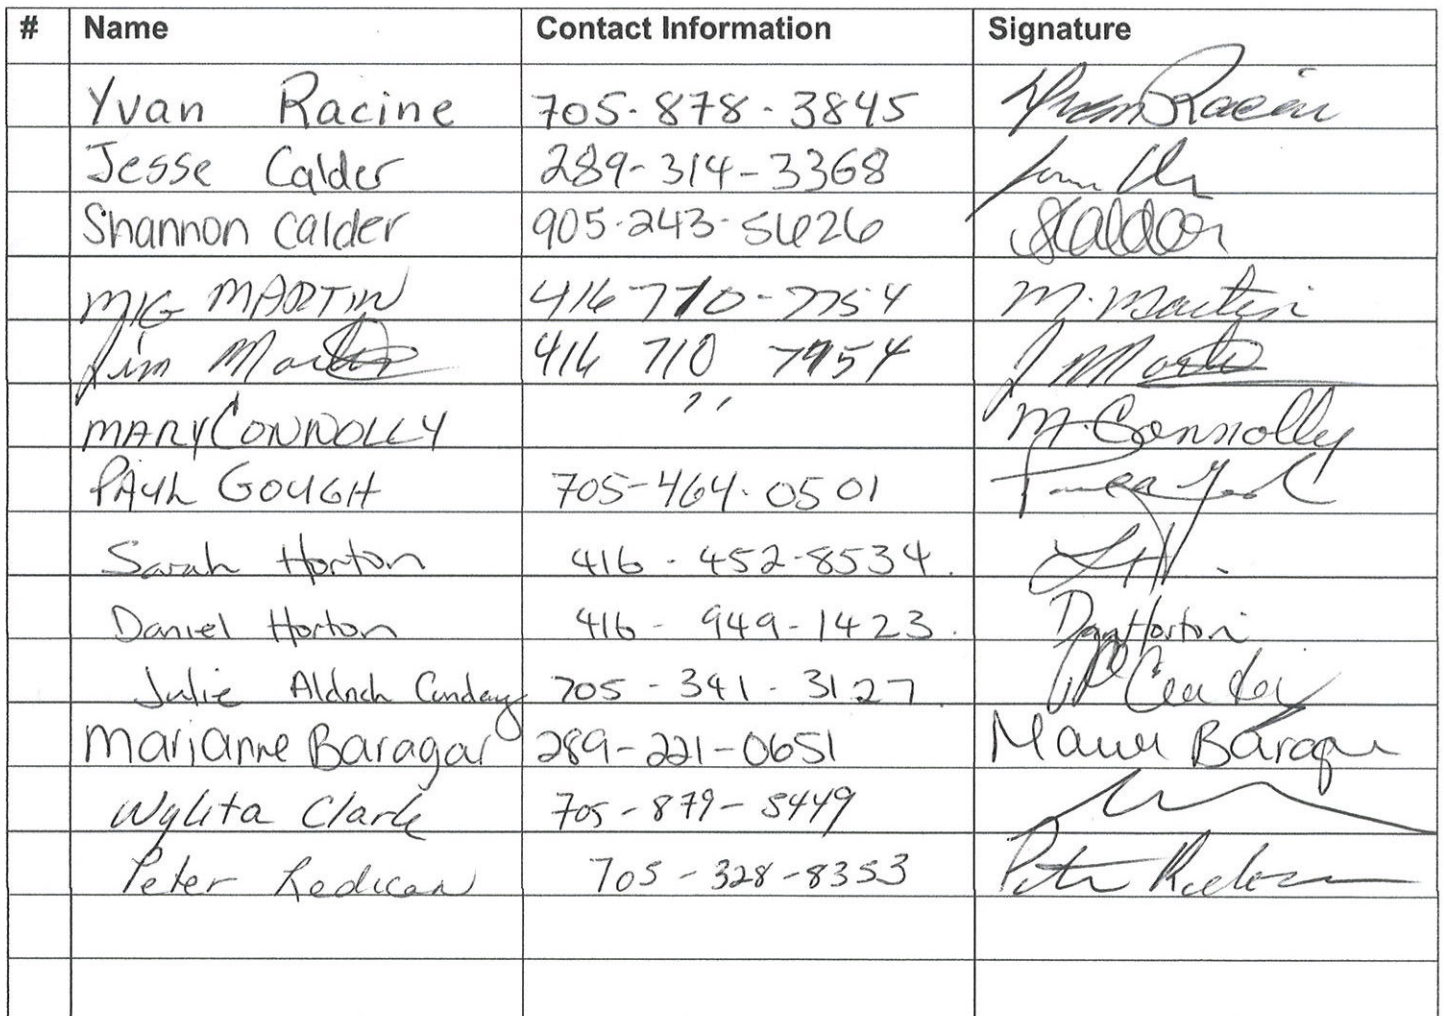 # Name Contact Information Signature
Yvan Racine 705-878-3845 Yvan Racine
Jesse Calder 289-314-3368
Shannon Calder 905-243-5626 SCalder
MIG MARTIN 416 710-7754 M. Martin
Jim Martin 416 710 7954 J Martin
MARY CONNOLLY " M. Connolly
PAUL GOUGH 705-464-0501
Sarah Horton 416-452-8534.
Daniel Horton 416-949-1423. Horton
Julie Aldrich Cunday 705-341-3127
Marianne Baragar 289-221-0651 Baragar
Wylita Clark 705-879-5449
Peter Redican 705-328-8353 Peter